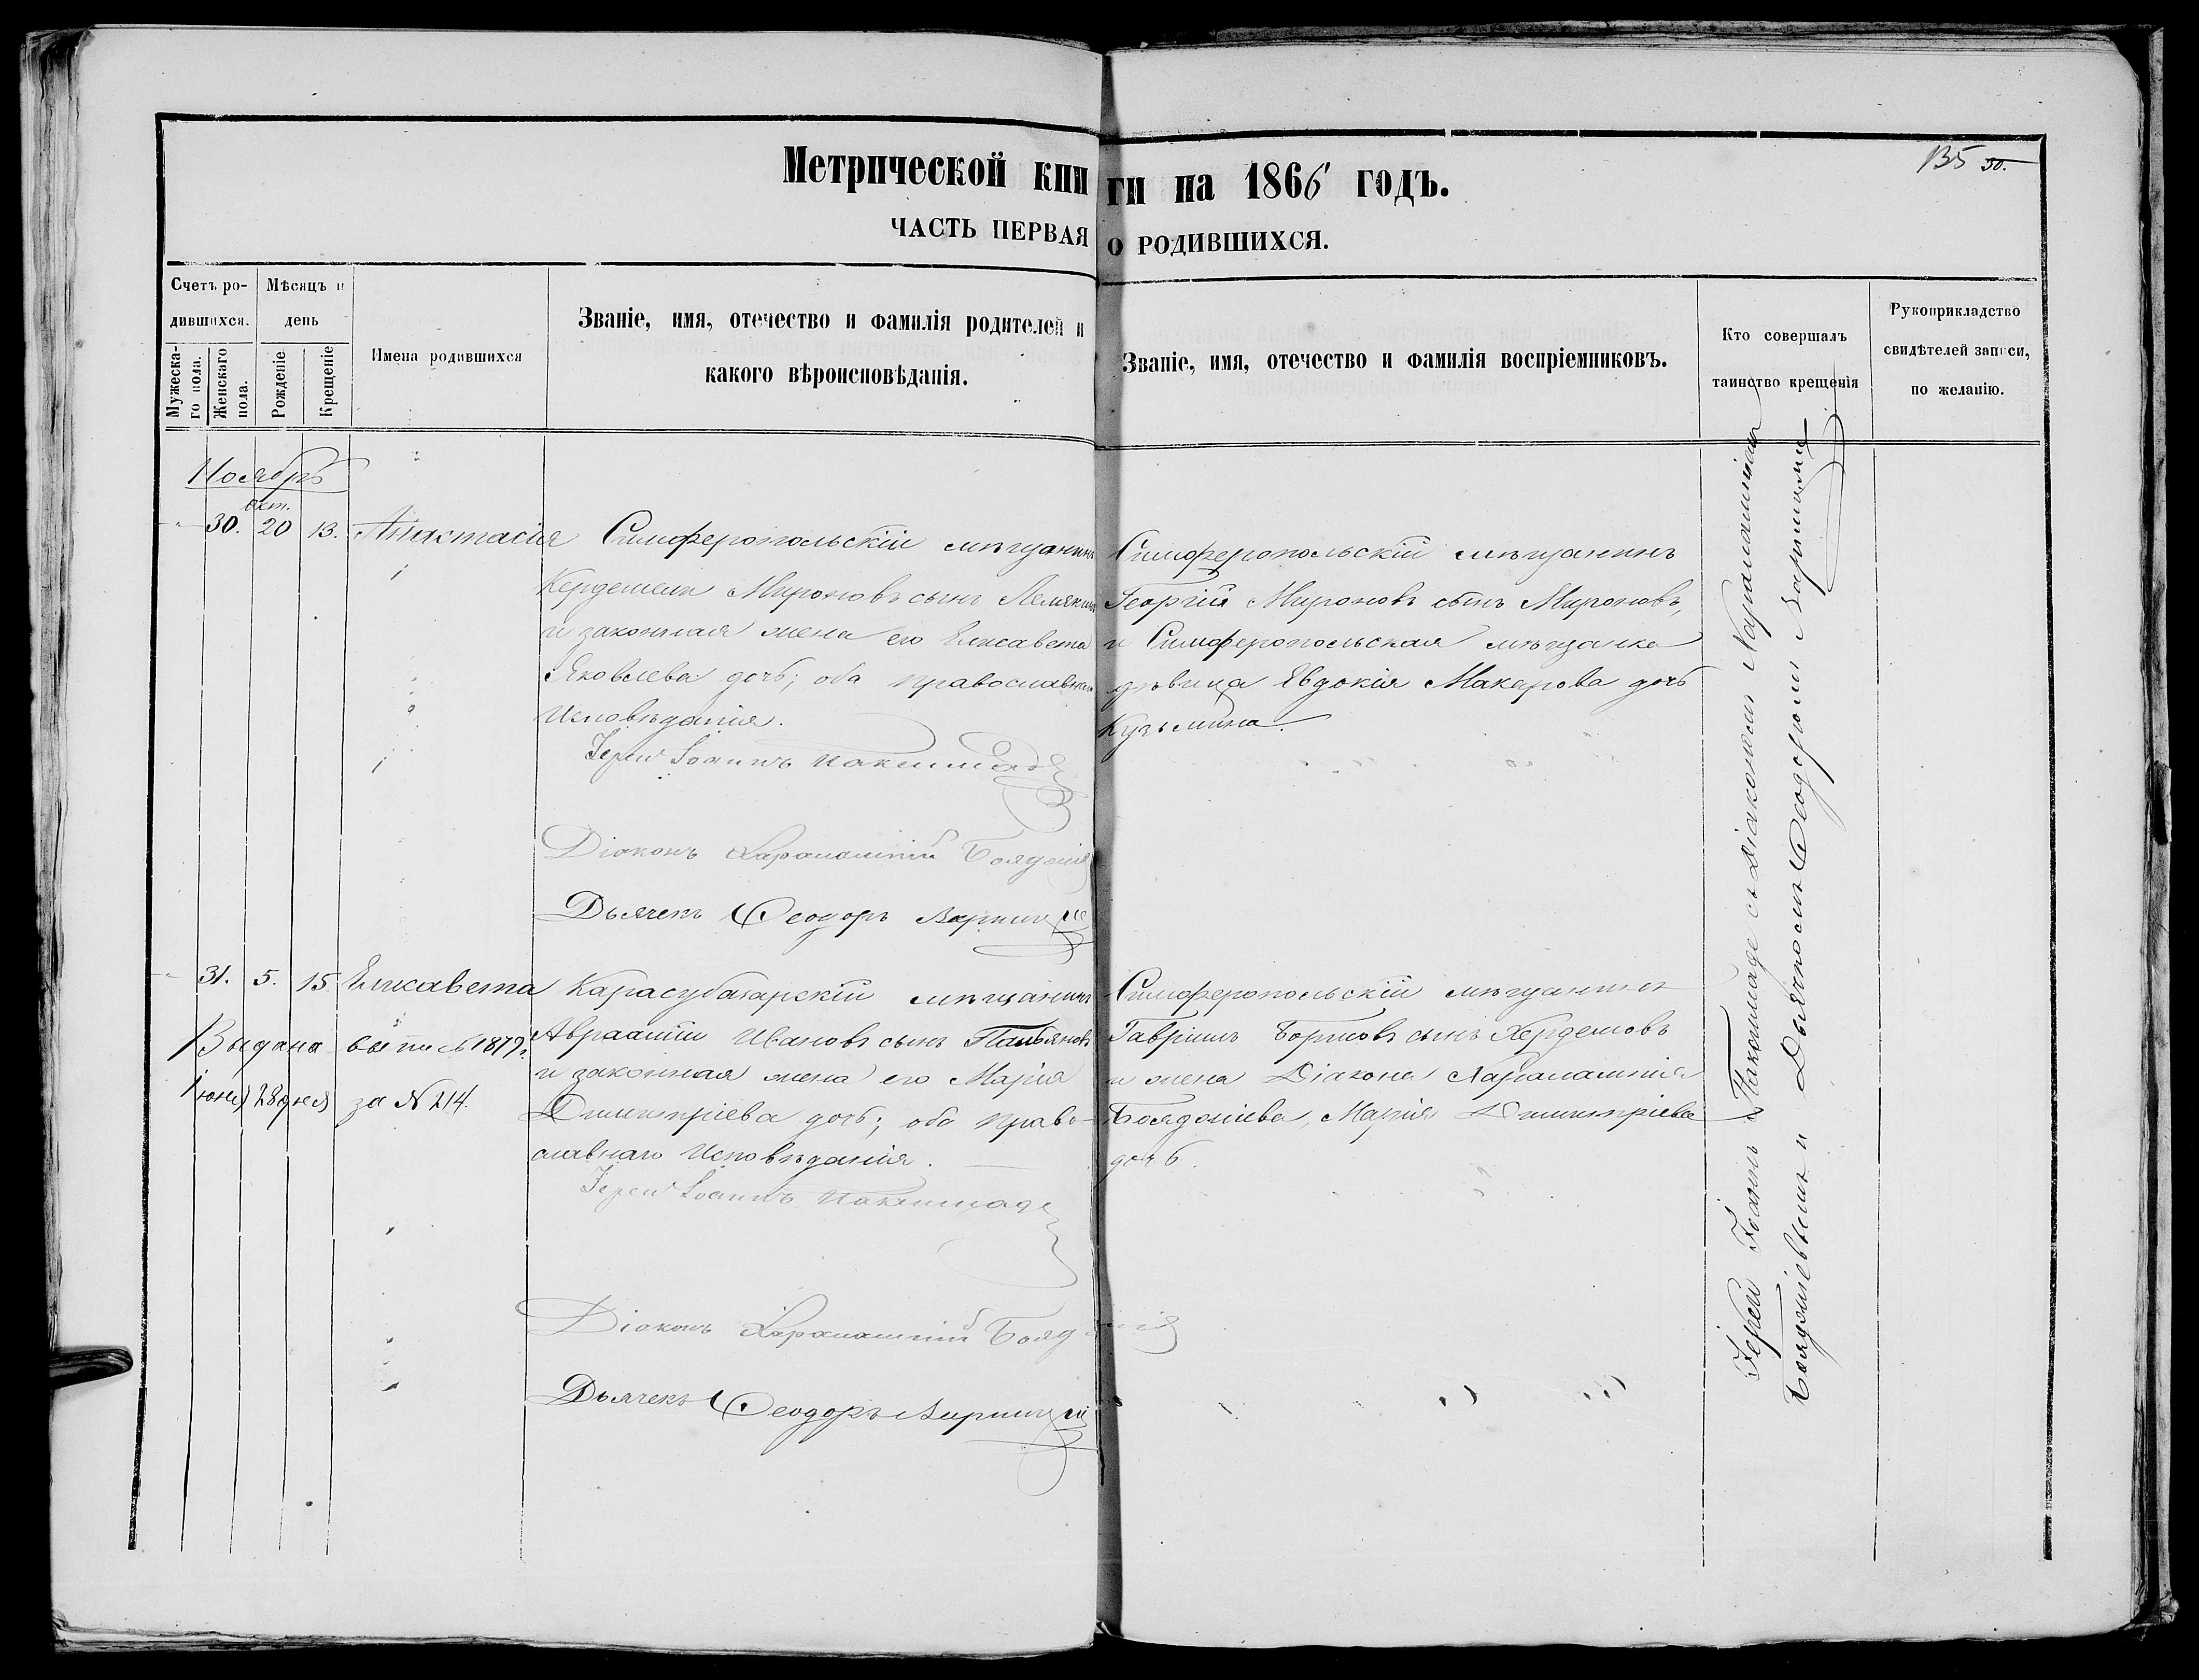 Метрической книги на 1866 годъ.
135 30.
ЧАСТЬ ПЕРВАЯ О РОДИВШИХСЯ.
Счетъ родившихся.
Мужескаго пола.
Женскаго пола.
Мѣсяцъ и день
Рожденіе
Крещеніе
Имена родившихся
Званіе, имя, отечество и фамилія родителей и
какого вѣроисповѣданія.
Званіе, имя, отечество и фамилія воспріемниковъ.
Кто совершалъ
таинство крещенія
Рукоприкладство
свидѣтелей записи,
по желанію.
Ноябрь
окт.
30. 20 13. Анастасія
Симферопольскій мѣщанинъ
Мироновъ сынъ
и законная жена его Елисавета
Яковлева дочь; оба православнаго
Исповѣданія.
Іерей Іоаннъ
Діаконъ Харалампій
Дьячекъ Ѳеодоръ
Симферопольскій мѣщанинъ
Георгій Мироновъ сынъ Мироновъ,
и Симферопольская мѣщанка
дѣвица Евдокія Макарова дочь
Кузьмина.
31. 5. 15. Елисавета
Выдана выпись 1879 г.
іюня 28 дня за № 214.
Карасубазарскій мѣщанинъ
Авраамій Ивановъ сынъ
и законная жена его Марія
Димитріева дочь; оба право-
славнаго Исповѣданія.
Іерей Іоаннъ
Діаконъ Харалампій
Дьячекъ Ѳеодоръ
Симферопольскій мѣщанинъ
Гавріилъ сынъ
и жена Діакона Харалампія
Марія Димитріева
дочь.
Іерей Іоаннъ съ Діакономъ Харалампіемъ
и Дьячкомъ Ѳеодоромъ